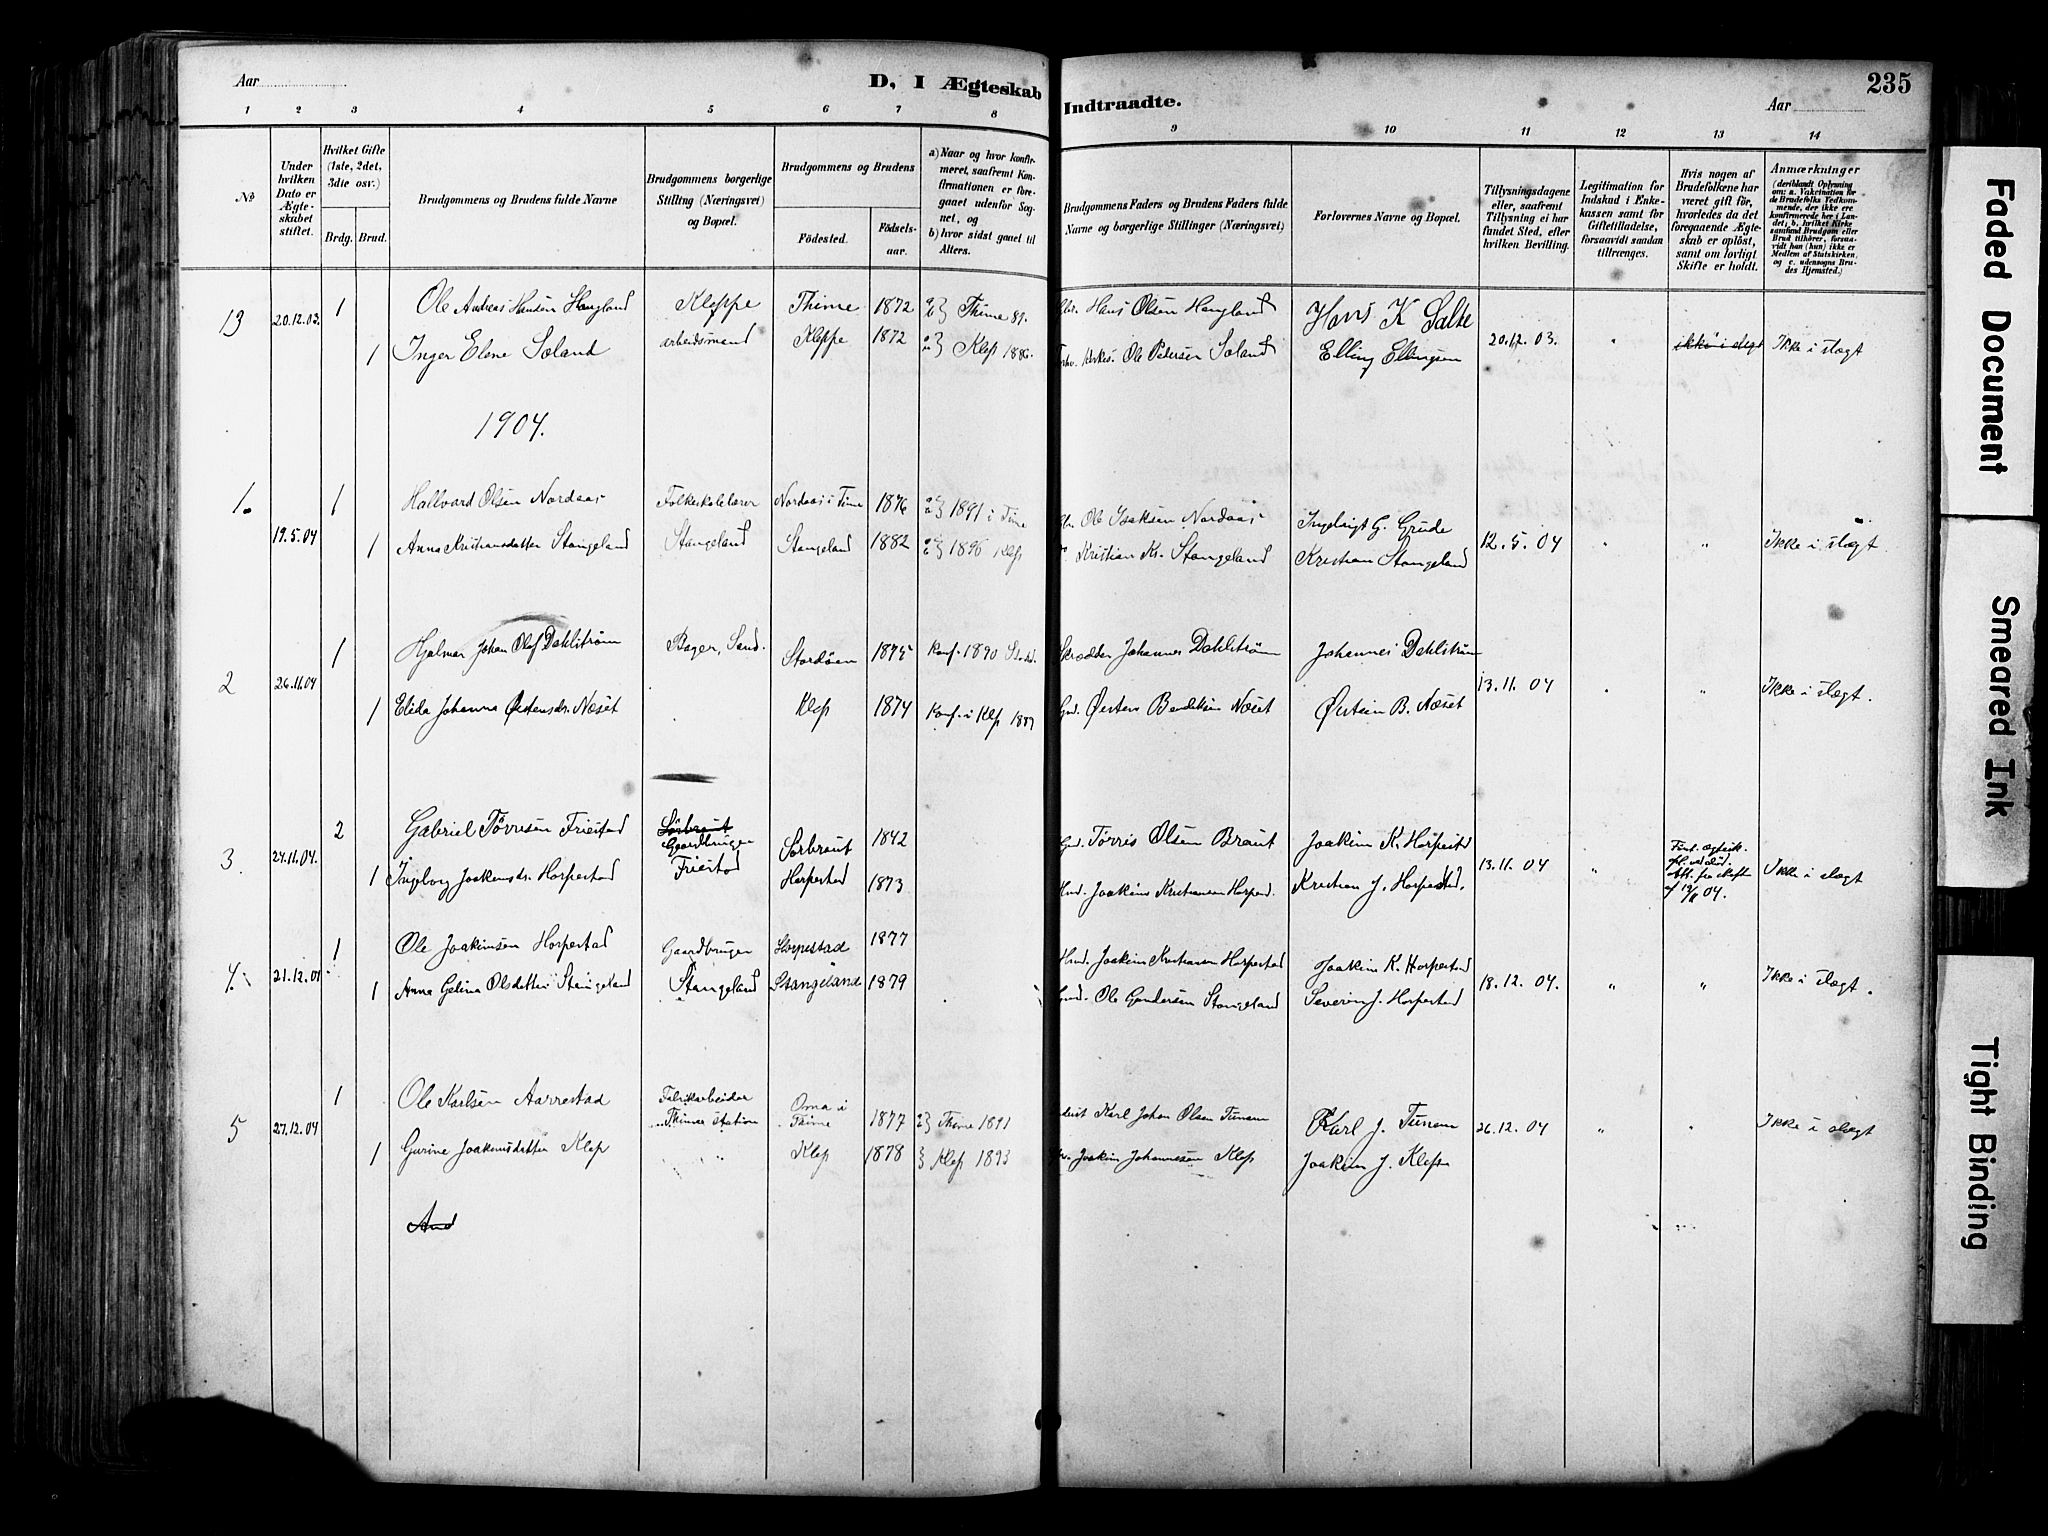 Aar
D, I Ægteskab
Indtraadte.
Aar
235
1 2 3 4 5 6 7 8 9 10 11 12 13 14
No
Under hvilken Dato er Ægteskabet stiftet.
Hvilket Gifte (1ste, 2det, 3die osv.)
Brdg. Brud.
Brudgommens og Brudens fulde Navne
Brudgommens borgerlige Stilling (Næringsvei) og Bopæl.
Brudgommens og Brudens
Fødested. Fødselsaar.
a) Naar og hvor konfirmeret, saafremt Konfirmationen er foregaaet udenfor Sognet, og
b) hvor sidst gaaet til Alters.
Brudgommens Faders og Brudens Faders fulde Navne og borgerlige Stillinger (Næringsvei)
Forlovernes Navne og Bopæl.
Tillysningsdagene eller, saafremt Tillysning ei har fundet Sted, efter hvilken Bevilling.
Legitimation for Indskud i Enkekassen samt for Giftetilladelse, forsaavidt saadan tiltrænges.
Hvis nogen af Brudefolkene har været gift før, hvorledes da det foregaaende Ægteskab er opløst, samt om lovligt Skifte er holdt.
Anmærkninger
(deriblandt Oplysning om: a. Vakcination for de Brudefolks Vedkommende, der ikke ere konfirmerede her i Landet; b. hvilket Kirkesamfund Brudgom eller Brud tilhører, forsaavidt han (hun) ikke er Medlem af Statskirken, og c. udensogns Brudes Hjemsted.)
13 20.12.03. 1 Ole Andreas Hansen Haugland Kleppe Thime 1872 Thime 87. Hans Olsen Haugland Hans K Salte
1 Inger Elene Soland arbeidsmand Kleppe 1872 Klep 1886 Ole Pedersen Soland Elling Ellingsen 20.12.03. " ikke i slegt Ikke i slægt
1904.
1. 1 Hallvard Olsen Nordaas Folkeskolelærer Nordaas i Time 1876 1891 i Time Ole Isaksen Nordaas Ingebrigt G. Grude
19.5.04 1 Anna Kristiansdatter Stangeland Stangeland Stangeland 1882 1896 i Klep Kristian Kr. Stangeland Kristian Stangeland 12.5.04 " " Ikke i slægt
1 Hjalmar Johan Olaf Dahlström Bager, Sand. Stordöen 1875 Konf. 1890 Skrædder Johannes Dahlström Johannes Dahlström
2 26.11.04 1 Elida Johanna Østensdr. Næset Klep 1874 Konf. i Klep 1889 Gmd. Østen Bendiksen Næset Østein B. Næset 13.11.04 " " Ikke i slægt.
2 Gabriel Törresen Friestad Sörbraut Gaardbruger Sörbraut 1842 Gmd. Törris Olsen Braut Joakim K. Horpestd
3. 24.11.04. 1 Ingeborg Joakimsdr. Horpestad Friestad Horpestad 1873 Joakim Kristiansen Horpesd. Kristian J. Horpestad. 13.11.04 " af 04. Ikke i slægt
1 Ole Joakimsen Horpestad Gaardbruger Horpestad 1877 Joakim Kristiansen Horpestad Joakim K. Horpestad
4. 21.12.04 1 Anna Gelina Olsdatter Stangeland Stangeland Stangeland 1879 Gmd. Ole Gundersen Stangeland Severin J. Horpestad 18.12.04. " " Ikke i slægt.
1 Ole Karlsen Aarrestad Fabrikarbeider Thime Station Oma i Thime 1877 Thime 1891 Karl Johan Olsen Tunem Karl J. Tunem
5 27.12.04 1 Gurine Joakimsdatter Klep " " Klep 1878 Klep 1893 Joakim Johannesen Klep Joakim J. Klep 26.12.04 " " Ikke i slægt
And
Faded Document
Smeared Ink
Tight Binding